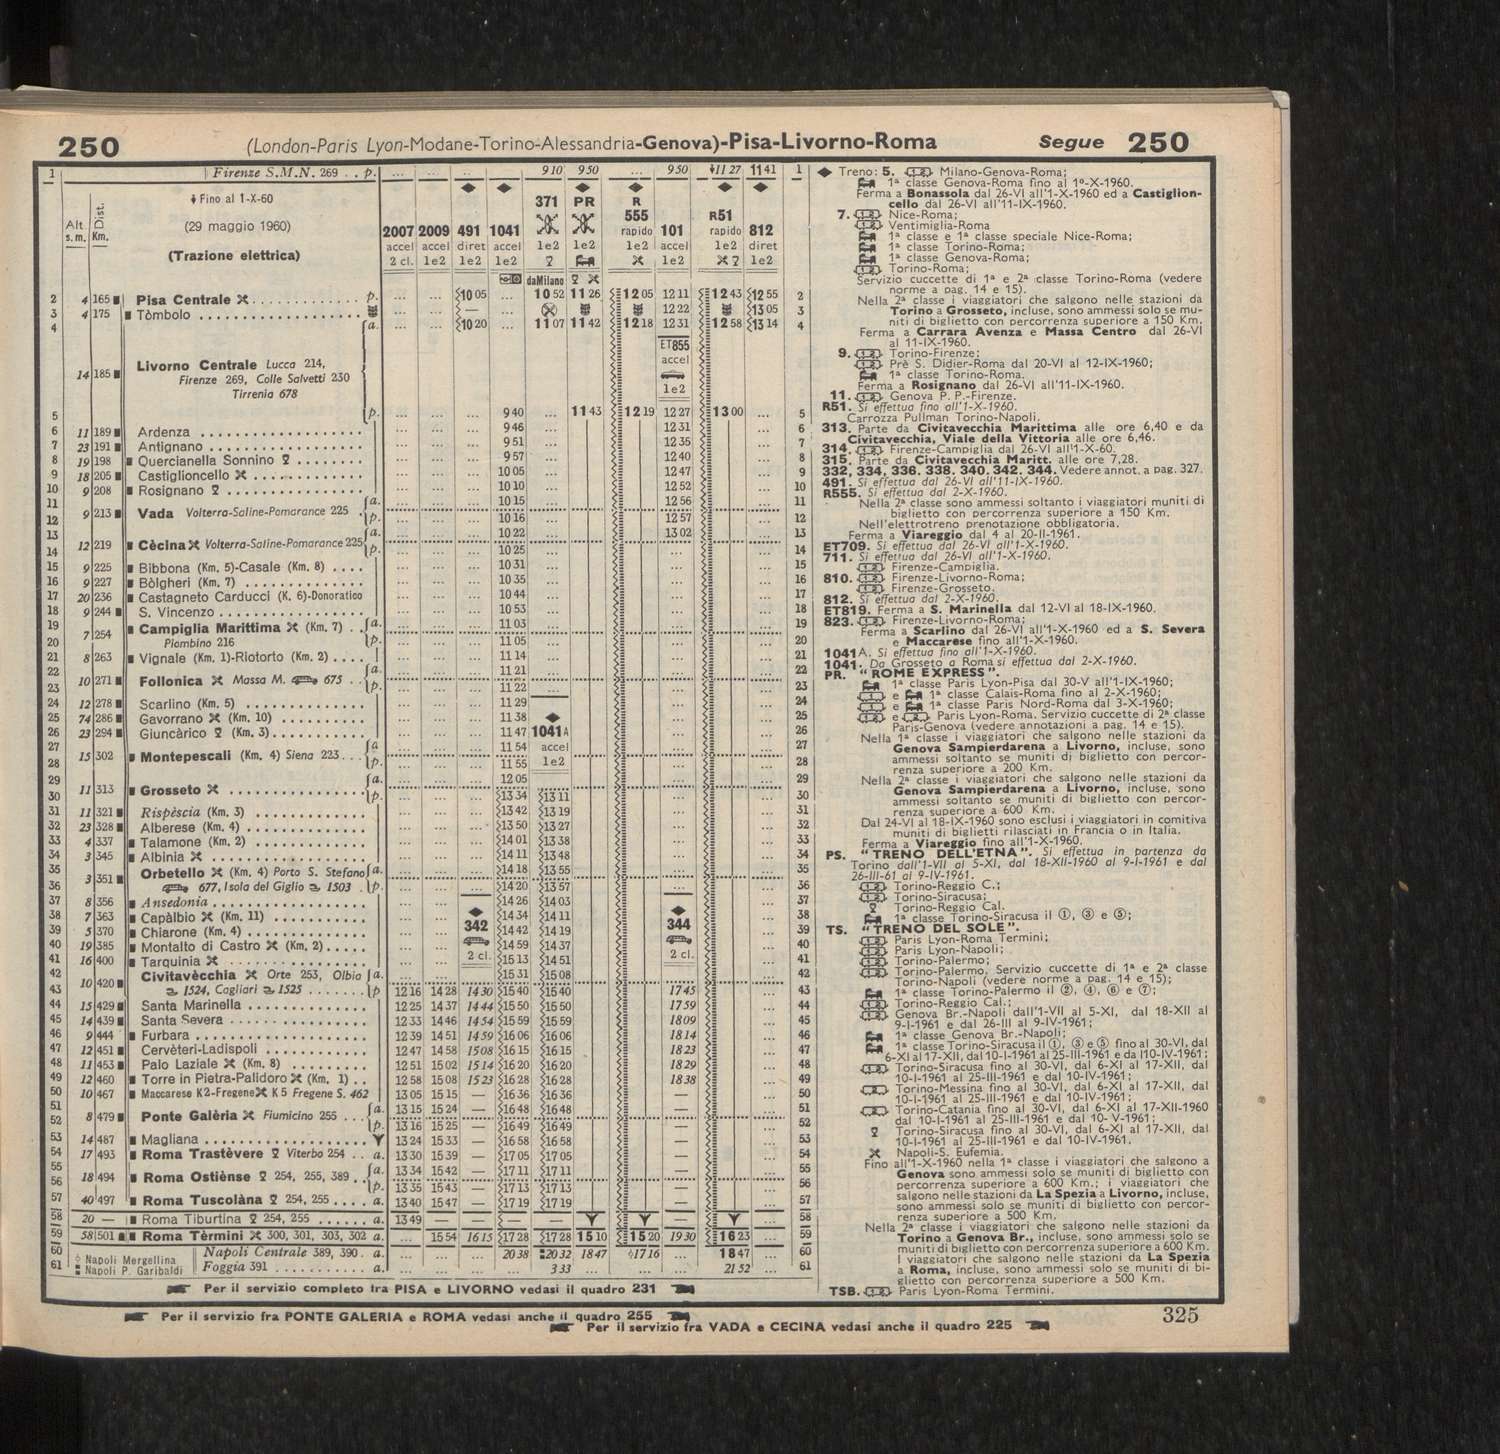 250 (London-Paris Lyon-Modane-Torino-Alessandria-Genova)-Pisa-Livorno-Roma Segue 250
1 Firenze S.M.N. 269 . . p. ... ... ... ... 9 10 9 50 ... 9 50 11 27 11 41 1
Fino al 1-X-60
(29 maggio 1960)
(Trazione elettrica)
Alt. s. m. Dist. Km.
371 PR R
555 R51
2007 2009 491 1041 rapido 101 rapido 812
accel accel diret accel 1e2 1e2 1e2 accel 1e2 diret
2 cl. 1e2 1e2 1e2 1e2 1e2
daMilano
2 4 165 Pisa Centrale p. ... ... 10 05 ... 10 52 11 26 12 05 12 11 12 43 12 55 2
3 4 175 Tòmbolo ... ... — ... 12 22 13 05 3
4 a. ... ... 10 20 ... 11 07 11 42 12 18 12 31 12 58 13 14 4
14 185 Livorno Centrale Lucca 214,
Firenze 269, Colle Salvetti 230
Tirrenia 678
ET855
accel
1e2
5 p. ... ... ... 9 40 ... 11 43 12 19 12 27 13 00 ... 5
6 11 189 Ardenza ... ... ... 9 46 ... 12 31 ... 6
7 23 191 Antignano ... ... ... 9 51 ... 12 35 ... 7
8 19 198 Quercianella Sonnino ... ... ... 9 57 ... 12 40 ... 8
9 18 205 Castiglioncello ... ... ... 10 05 ... 12 47 ... 9
10 9 208 Rosignano ... ... ... 10 10 ... 12 52 ... 10
11 a. ... ... ... 10 15 ... 12 56 ... 11
9 213 Vada Volterra-Saline-Pomarance 225
12 p. ... ... ... 10 16 ... 12 57 ... 12
13 a. ... ... ... 10 22 ... 13 02 ... 13
12 219 Cècina Volterra-Saline-Pomarance 225
14 p. ... ... ... 10 25 ... ... ... 14
15 9 225 Bibbona (Km. 5)-Casale (Km. 8) ... ... ... 10 31 ... ... ... 15
16 9 227 Bòlgheri (Km. 7) ... ... ... 10 35 ... ... ... 16
17 20 236 Castagneto Carducci (K. 6)-Donoratico ... ... ... 10 44 ... ... ... 17
18 9 244 S. Vincenzo ... ... ... 10 53 ... ... ... 18
19 a. ... ... ... 11 03 ... ... ... 19
7 254 Campiglia Marittima (Km. 7)
20 Piombino 216 p. ... ... ... 11 05 ... ... ... 20
21 8 263 Vignale (Km. 1)-Riotorto (Km. 2) ... ... ... 11 14 ... ... ... 21
22 a. ... ... ... 11 21 ... ... ... 22
10 271 Follonica Massa M. 675
23 p. ... ... ... 11 22 ... ... ... 23
24 12 278 Scarlino (Km. 5) ... ... ... 11 29 ... ... 24
25 74 286 Gavorrano (Km. 10) ... ... ... 11 38 ... ... 25
26 23 294 Giuncàrico (Km. 3) ... ... ... 11 47 1041A ... ... 26
27 a ... ... ... 11 54 accel ... ... 27
15 302 Montepescali (Km. 4) Siena 223
28 p. ... ... ... 11 55 1e2 ... ... 28
29 a. ... ... ... 12 05 ... ... 29
11 313 Grosseto
30 p. ... ... ... 13 34 13 11 ... ... 30
31 11 321 Rispèscia (Km. 3) ... ... ... 13 42 13 19 ... ... 31
32 23 328 Alberese (Km. 4) ... ... ... 13 50 13 27 ... ... 32
33 4 337 Talamone (Km. 2) ... ... ... 14 01 13 38 ... ... 33
34 3 345 Albinia ... ... ... 14 11 13 48 ... ... 34
35 a. ... ... ... 14 18 13 55 ... ... 35
3 351 Orbetello (Km. 4) Porto S. Stefano
36 677, Isola del Giglio 1503 . p. ... ... ... 14 20 13 57 ... ... 36
37 8 356 Ansedonia ... ... 14 26 14 03 ... 37
38 7 363 Capàlbio (Km. 11) ... ... 14 34 14 11 ... 38
39 5 370 Chiarone (Km. 4) ... ... 342 14 42 14 19 344 ... 39
40 19 385 Montalto di Castro (Km. 2) ... ... 14 59 14 37 ... 40
41 16 400 Tarquinia ... ... 2 cl. 15 13 14 51 2 cl. ... 41
42 Civitavècchia Orte 253, Olbia a. ... ... 15 31 15 08 ... 42
10 420
43 1524, Cagliari 1525 p 12 16 14 28 14 30 15 40 15 40 17 45 ... 43
44 15 429 Santa Marinella 12 25 14 37 14 44 15 50 15 50 17 59 ... 44
45 14 439 Santa Severa 12 33 14 46 14 54 15 59 15 59 18 09 ... 45
46 9 444 Furbara 12 39 14 51 14 59 16 06 16 06 18 14 ... 46
47 12 451 Cervèteri-Ladispoli 12 47 14 58 15 08 16 15 16 15 18 23 ... 47
48 11 453 Palo Laziale (Km. 8) 12 51 15 02 15 14 16 20 16 20 18 29 ... 48
49 12 460 Torre in Pietra-Palidoro (Km. 1) 12 58 15 08 15 23 16 28 16 28 18 38 ... 49
50 10 467 Maccarese K2-Fregene K 5 Fregene S. 462 13 05 15 15 — 16 36 16 36 — ... 50
51 a. 13 15 15 24 — 16 48 16 48 — ... 51
8 479 Ponte Galèria Fiumicino 255
52 p. 13 16 15 25 — 16 49 16 49 — ... 52
53 14 487 Magliana 13 24 15 33 — 16 58 16 58 — ... 53
54 17 493 Roma Trastèvere Viterbo 254 . . a. 13 30 15 39 — 17 05 17 05 — ... 54
55 a. 13 34 15 42 — 17 11 17 11 — ... 55
18 494 Roma Ostiènse 254, 255, 389
56 p. 13 35 15 43 — 17 13 17 13 — ... 56
57 40 497 Roma Tuscolàna 254, 255 . . . . a. 13 40 15 47 — 17 19 17 19 — ... 57
58 20 — Roma Tiburtina 254, 255 a. 13 49 — — — — — ... 58
59 58 501 Roma Tèrmini 300, 301, 303, 302 a. ... 15 54 16 15 17 28 17 28 15 10 15 20 19 30 16 23 ... 59
60 Napoli Mergellina Napoli Centrale 389, 390 . a. ... ... ... 20 38 20 32 18 47 17 16 ... 18 47 ... 60
61 Napoli P. Garibaldi Foggia 391 a. ... ... ... ... 3 33 ... ... ... 21 52 ... 61
Per il servizio completo tra PISA e LIVORNO vedasi il quadro 231
Treno: 5. Milano-Genova-Roma;
1ª classe Genova-Roma fino al 1º-X-1960.
Ferma a Bonassola dal 26-VI all'1-X-1960 ed a Castiglion-
cello dal 26-VI all'11-IX-1960.
7. Nice-Roma;
Ventimiglia-Roma
1ª classe e 1ª classe speciale Nice-Roma;
1ª classe Torino-Roma;
1ª classe Genova-Roma;
Torino-Roma;
Servizio cuccette di 1ª e 2ª classe Torino-Roma (vedere
norme a pag. 14 e 15).
Nella 2ª classe i viaggiatori che salgono nelle stazioni da
Torino a Grosseto, incluse, sono ammessi solo se mu-
niti di biglietto con percorrenza superiore a 150 Km.
Ferma a Carrara Avenza e Massa Centro dal 26-VI
al 11-IX-1960.
9. Torino-Firenze;
Prè S. Didier-Roma dal 20-VI al 12-IX-1960;
1ª classe Torino-Roma.
Ferma a Rosignano dal 26-VI all'11-IX-1960.
11. Genova P. P.-Firenze.
R51. Si effettua fino all'1-X-1960.
Carrozza Pullman Torino-Napoli.
313. Parte da Civitavecchia Marittima alle ore 6,40 e da
Civitavecchia, Viale della Vittoria alle ore 6,46.
314. Firenze-Campiglia dal 26-VI all'1-X-60.
315. Parte da Civitavecchia Maritt. alle ore 7,28.
332, 334, 336, 338, 340, 342, 344. Vedere annot. a pag. 327.
491. Si effettua dal 26-VI all'11-IX-1960.
R555. Si effettua dal 2-X-1960.
Nella 2ª classe sono ammessi soltanto i viaggiatori muniti di
biglietto con percorrenza superiore a 150 Km.
Nell'elettrotreno prenotazione obbligatoria.
Ferma a Viareggio dal 4 al 20-II-1961.
ET709. Si effettua dal 26-VI all'1-X-1960.
711. Si effettua dal 26-VI all'1-X-1960.
Firenze-Campiglia.
810. Firenze-Livorno-Roma;
Firenze-Grosseto.
812. Si effettua dal 2-X-1960.
ET819. Ferma a S. Marinella dal 12-VI al 18-IX-1960.
823. Firenze-Livorno-Roma;
Ferma a Scarlino dal 26-VI all'1-X-1960 ed a S. Severa
e Maccarese fino all'1-X-1960.
1041A. Si effettua fino all'1-X-1960.
1041. Da Grosseto a Roma si effettua dal 2-X-1960.
PR. "ROME EXPRESS".
1ª classe Paris Lyon-Pisa dal 30-V all'1-IX-1960;
e 1ª classe Calais-Roma fino al 2-X-1960;
e 1ª classe Paris Nord-Roma dal 3-X-1960;
e Paris Lyon-Roma. Servizio cuccette di 2ª classe
Paris-Genova (vedere annotazioni a pag. 14 e 15).
Nella 1ª classe i viaggiatori che salgono nelle stazioni da
Genova Sampierdarena a Livorno, incluse, sono
ammessi soltanto se muniti di biglietto con percor-
renza superiore a 200 Km.
Nella 2ª classe i viaggiatori che salgono nelle stazioni da
Genova Sampierdarena a Livorno, incluse, sono
ammessi soltanto se muniti di biglietto con percor-
renza superiore a 600 Km.
Dal 24-VI al 18-IX-1960 sono esclusi i viaggiatori in comitiva
muniti di biglietti rilasciati in Francia o in Italia.
Ferma a Viareggio fino all'1-X-1960.
PS. "TRENO DELL'ETNA". Si effettua in partenza da
Torino dall'1-VII al 5-XI, dal 18-XII-1960 al 9-I-1961 e dal
26-III-61 al 9-IV-1961.
Torino-Reggio C.;
Torino-Siracusa;
Torino-Reggio Cal.
1ª classe Torino-Siracusa il ①, ③ e ⑤;
TS. "TRENO DEL SOLE".
Paris Lyon-Roma Termini;
Paris Lyon-Napoli;
Torino-Palermo;
Torino-Palermo. Servizio cuccette di 1ª e 2ª classe
Torino-Napoli (vedere norme a pag. 14 e 15);
1ª classe Torino-Palermo il ②, ④, ⑥ e ⑦;
Torino-Reggio Cal.;
Genova Br.-Napoli dall'1-VII al 5-XI, dal 18-XII al
9-I-1961 e dal 26-III al 9-IV-1961;
1ª classe Genova Br.-Napoli;
1ª classe Torino-Siracusa il ①, ③ e ⑤ fino al 30-VI, dal
6-XI al 17-XII, dal 10-I-1961 al 25-III-1961 e da l10-IV-1961;
Torino-Siracusa fino al 30-VI, dal 6-XI al 17-XII, dal
10-I-1961 al 25-III-1961 e dal 10-IV-1961;
Torino-Messina fino al 30-VI, dal 6-XI al 17-XII, dal
10-I-1961 al 25-III-1961 e dal 10-IV-1961;
Torino-Catania fino al 30-VI, dal 6-XI al 17-XII-1960
dal 10-I-1961 al 25-III-1961 e dal 10- V-1961;
Torino-Siracusa fino al 30-VI, dal 6-XI al 17-XII, dal
10-I-1961 al 25-III-1961 e dal 10-IV-1961.
Napoli-S. Eufemia.
Fino all'1-X-1960 nella 1ª classe i viaggiatori che salgono a
Genova sono ammessi solo se muniti di biglietto con
percorrenza superiore a 600 Km.; i viaggiatori che
salgono nelle stazioni da La Spezia a Livorno, incluse,
sono ammessi solo se muniti di biglietto con percor-
renza superiore a 500 Km.
Nella 2ª classe i viaggiatori che salgono nelle stazioni da
Torino a Genova Br., incluse, sono ammessi solo se
muniti di biglietto con percorrenza superiore a 600 Km.
I viaggiatori che salgono nelle stazioni da La Spezia
a Roma, incluse, sono ammessi solo se muniti di bi-
glietto con percorrenza superiore a 500 Km.
TSB. Paris Lyon-Roma Termini.
Per il servizio fra PONTE GALERIA e ROMA vedasi anche il quadro 255
Per il servizio fra VADA e CECINA vedasi anche il quadro 225
325